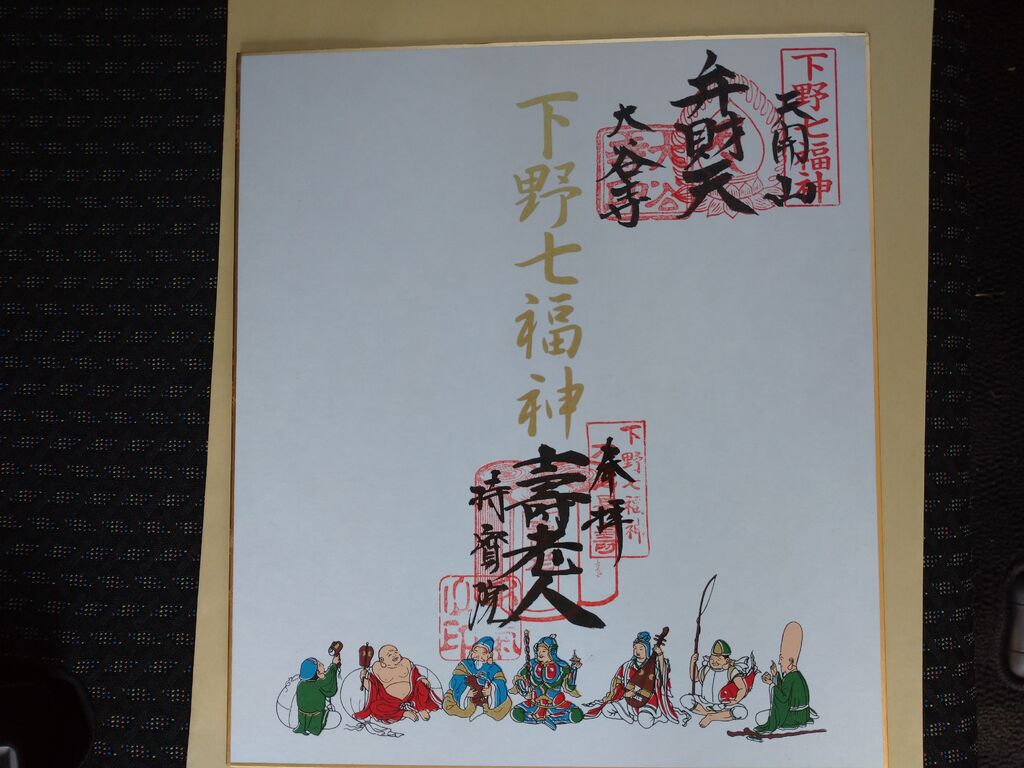 下野七福神
天開山
弁財天
大谷寺
下野七福神
下野七福神
奉拝
壽老人
持寳院